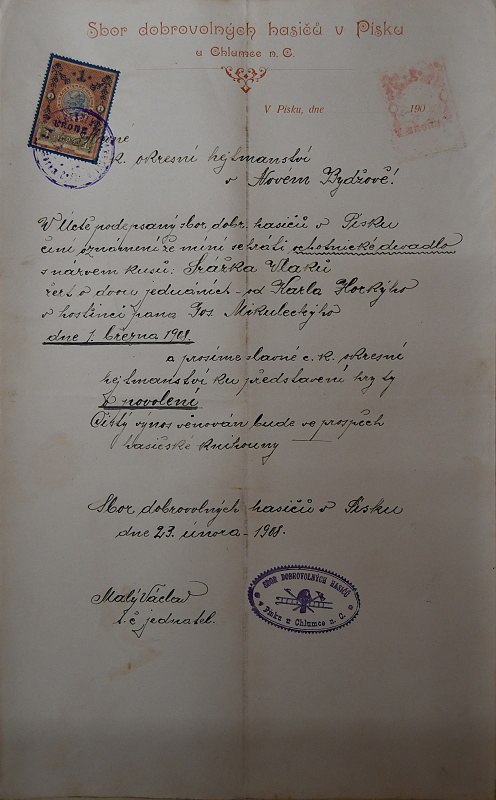 Sbor dobrovolných hasičů v Písku
u Chlumce n. C.
V Písku, dne 190
1
k. okresní hejtmanství
v Novém Bydžově!
V úctě podepsaný sbor dobr. hasičů v Písku
činí oznámení že míní sehráti ochotnické divadlo
s názvem kusů: Srážka Vlaků
žert o dvou jednáních - od Karla Hockýho
v hostinci pana Jos. Mikuleckýho
dne 1. března 1908.
a prosíme slavné c. k. okresní
hejtmanství ku představení hry ty
povolení
Čistý výnos věnován bude ve prospěch
hasičské knihovny
Sbor dobrovolných hasičů v Písku
dne 23. února - 1908.
Malý Václav
t. č. jednatel.
SBOR DOBROVOLNÝCH HASIČŮ
v Písku u Chlumce n. C.